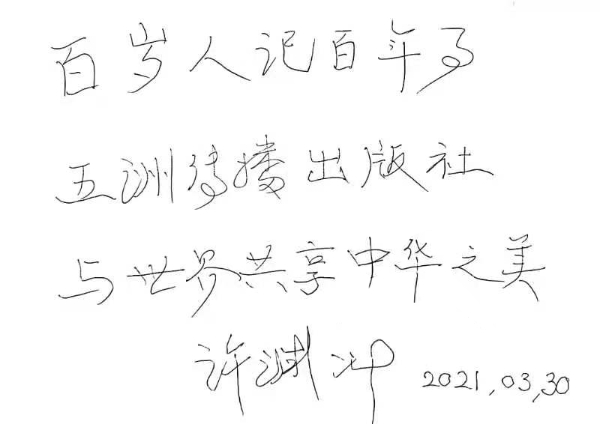 百岁人记百年事
五洲传播出版社
与世界共享中华之美
许渊冲 2021,03,30